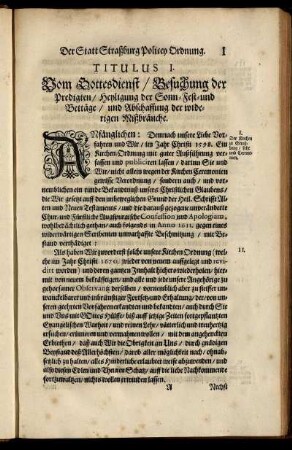 Der Statt Straßburg Policey Ordnung. 1
TITULUS I.
Vom Gottesdienst / Besuchung der
Predigten / Heyligung der Sonn- Fest- und
Bettäge / und Abschaffung der widr-
igen Mißbräuche.
ANfänglichen: Demnach unsere Liebe Vor-
fahren und Wir / im Jahr Christi 1598. Ein
Kirchen-Ordnung mit guter Außführung ver-
fassen und publiciren lassen / darinn Sie und
Wir / nicht allein wegen der Kirchen Ceremonien
gewisse Verordnung / sondern auch / und vor-
nemblichen ein runde Bekandtnuß unsers Christlichen Glaubens /
die Wir gesetzt auff den unbeweglichen Grund der Heil. Schrifft Al-
ten und Neuen Testaments / und die darauß gezogene unveränderte
Chur- und Fürstliche Augspurgische Confession und Apologiam,
wohlbedächtlich gethan / und folgends in Anno 1611. gegen eines
unserwärtigen Scribenten unwarhaffte Beschmitzung / mit Be-
stand verthädiget:
Als haben Wir zuvorderst solche unsere Kirchen-Ordnung (wel-
che im Jahr Christi wieder von neuem auffgelegt und revi-
dirt worden) und deren gantzen Innhalt hieher wiederholen / hiermit
von neuem bekräfftigen /
gehorsame Observanz derselben / vornemblich aber zu steiffer
unwandelbarer und immerwährender Fortsetzung und Erhaltung / der von un-
seren geehrten Vorfahren erkandten und bekandten / und durch Sie
und Uns mit Gottes Hülffe / biß auff jetzige Zeiten fortgepflantzten
Evangelischen Warheit / und reinen Lehr / vätterlich und treuhertzig
ersuchen / erinnern und vermahnen wollen / mit dem angehenckten
Erbiethen / daß auch Wir die Obrigkeit an Uns / durch gnädigen
Beystand deß Allerhöchsten / darob aller möglichkeit nach / ohnab-
setzlich zu halten / alles Hinderliche erlaubter weise abzuwenden / und
also diesen Edlen und Theuren Schatz / auff die liebe Nachkommende
fortzuwaltzen / nichts wollen ermanglen lassen.
A Nechst
I.
Der Kirchen
II.